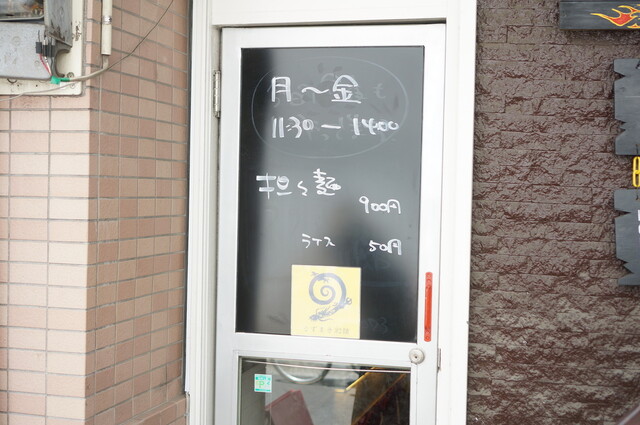 月～金
11:30ー1400
担々麺
900円
ライス 50円